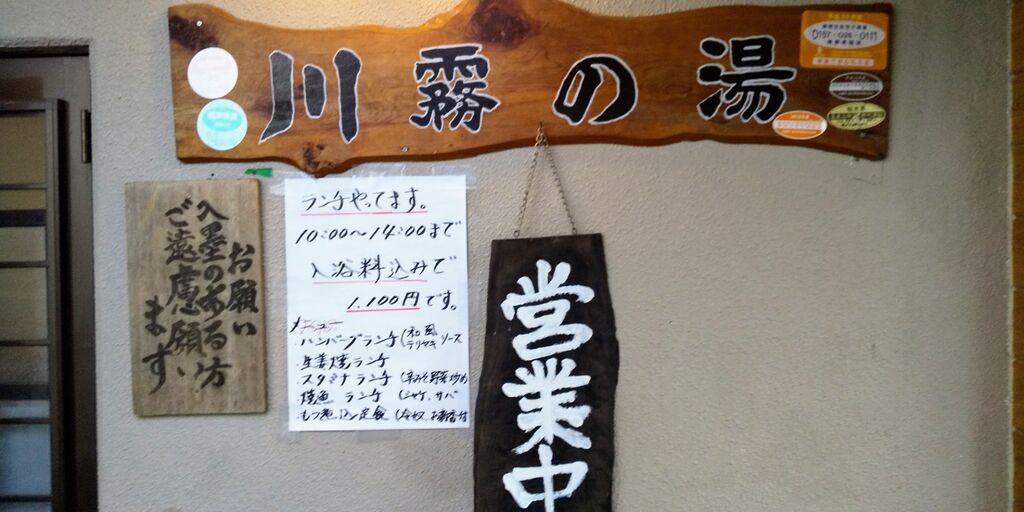 川霧の湯
0157-026-0111
お願い
入墨のある方
ご遠慮願い
ます
ランチやってます。
10:00〜14:00まで
入浴料込みで
1.100円です。
・ハンバーグランチ(和風 テリヤキ ソース
生姜焼ランチ
・スタミナランチ (辛みそ野菜炒め
焼魚 ランチ (シャケ、サバ
もつ煮込ン定食 (冷奴、お新香付
営業中